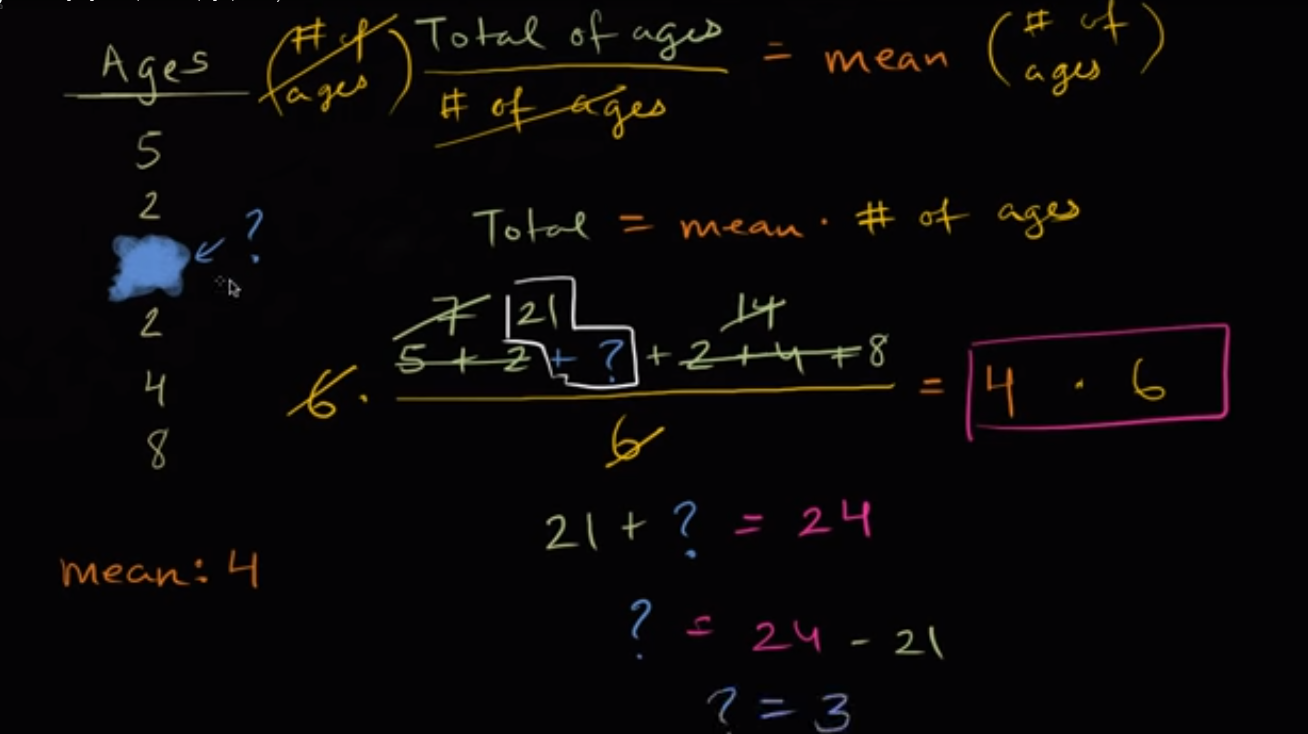 Ages
5
2
?
2
4
8
mean: 4
(# of ages) Total of ages / # of ages = mean (# of ages)
Total = mean · # of ages
7 21 14
6 · 5 + 2 + ? + 2 + 4 + 8 = 4 · 6
6
21 + ? = 24
? = 24 - 21
? = 3